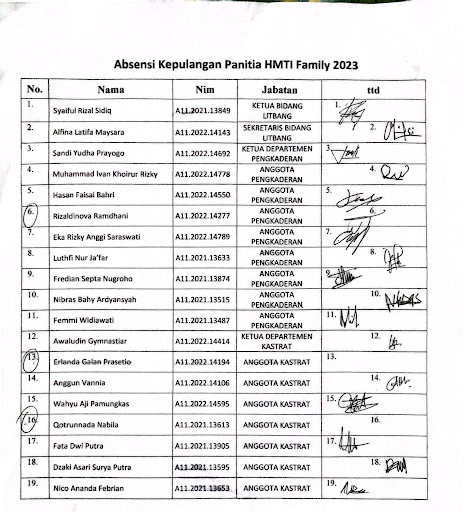 Absensi Kepulangan Panitia HMTI Family 2023
No. Nama Nim Jabatan ttd
1. Syaiful Rizal Sidiq A11.2021.13849 KETUA BIDANG LITBANG 1.
2. Alfina Latifa Maysara A11.2022.14143 SEKRETARIS BIDANG LITBANG 2.
3. Sandi Yudha Prayogo A11.2022.14692 KETUA DEPARTEMEN PENGKADERAN 3.
4. Muhammad Ivan Khoirur Rizky A11.2022.14778 ANGGOTA PENGKADERAN 4.
5. Hasan Faisal Bahri A11.2022.14550 ANGGOTA PENGKADERAN 5.
6. Rizaldinova Ramdhani A11.2022.14277 ANGGOTA PENGKADERAN 6.
7. Eka Rizky Anggi Saraswati A11.2022.14789 ANGGOTA PENGKADERAN 7.
8. Luthfi Nur Ja'far A11.2021.13633 ANGGOTA PENGKADERAN 8.
9. Fredian Septa Nugroho A11.2021.13874 ANGGOTA PENGKADERAN 9.
10. Nibras Bahy Ardyansyah A11.2021.13515 ANGGOTA PENGKADERAN 10.
11. Femmi Widiawati A11.2021.13487 ANGGOTA PENGKADERAN 11.
12. Awaludin Gymnastiar A11.2022.14414 KETUA DEPARTEMEN KASTRAT 12.
13. Erlanda Galan Prasetio A11.2022.14194 ANGGOTA KASTRAT 13.
14. Anggun Vannia A11.2022.14106 ANGGOTA KASTRAT 14.
15. Wahyu Aji Pamungkas A11.2022.14595 ANGGOTA KASTRAT 15.
16. Qotrunnada Nabila A11.2021.13613 ANGGOTA KASTRAT 16.
17. Fata Dwi Putra A11.2021.13905 ANGGOTA KASTRAT 17.
18. Dzaki Asari Surya Putra A11.2021.13595 ANGGOTA KASTRAT 18.
19. Nico Ananda Febrian A11.2021.13653 ANGGOTA KASTRAT 19.